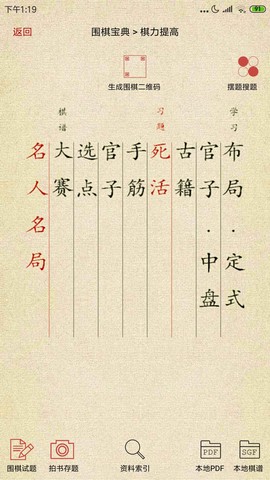 下午1:19
... 91
返回
围棋宝典 > 棋力提高
生成围棋二维码
摆题搜题
学习
布局·定式
官子·中盘
古籍
习题
死活
手筋
官子
选点
棋谱
大赛
名人名局
围棋试题
拍书存题
资料索引
PDF
本地PDF
SGF
本地棋谱